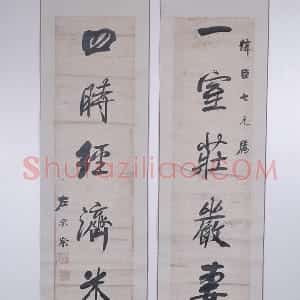 緯臣七兄屬
一室莊嚴妻
四時經濟米
左宗棠
Shufaziliao.com